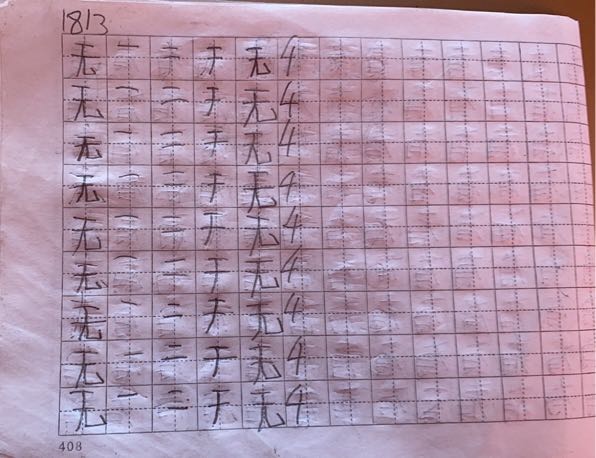 1813
无 一 二 于 无 4
无 一 二 于 无 4
无 一 二 于 无 4
无 一 二 于 无 4
无 一 二 于 无 4
无 一 二 于 无 4
无 一 二 于 无 4
无 一 二 于 无 4
无 一 二 于 无 4
408